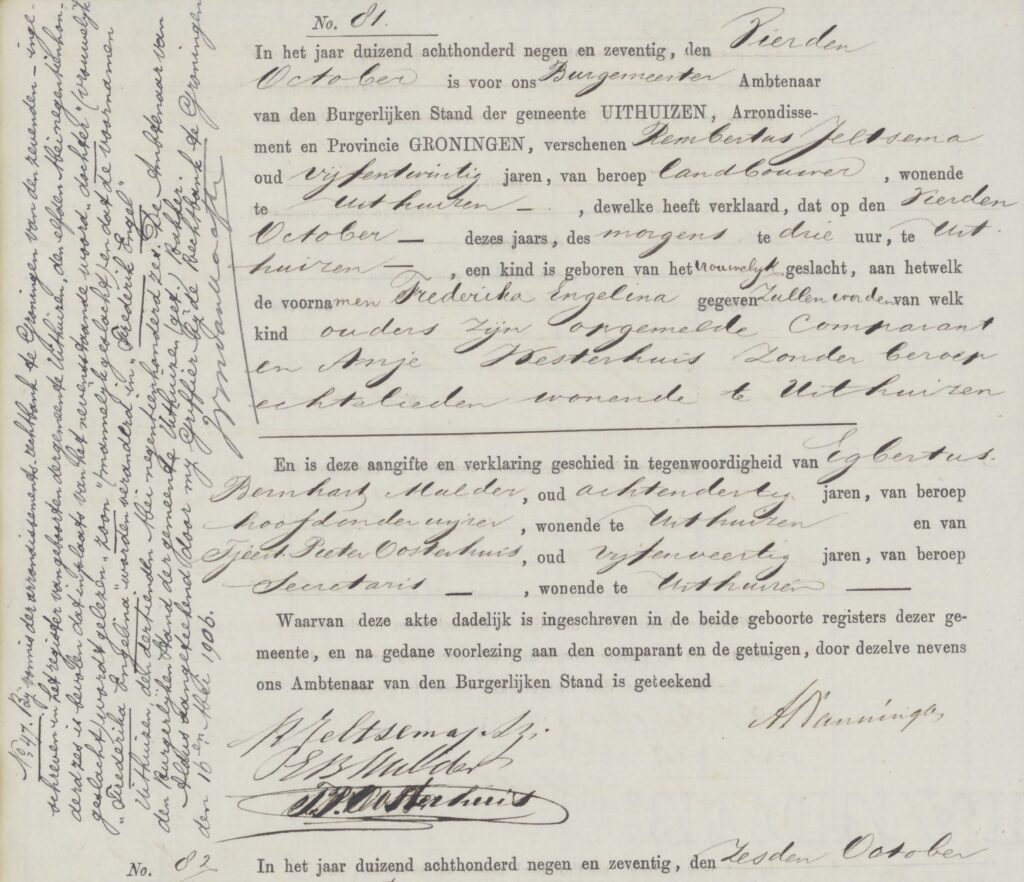 No. 81.
In het jaar duizend achthonderd negen en zeventig, den Vierden
October is voor ons Burgemeester Ambtenaar
van den Burgerlijken Stand der gemeente UITHUIZEN, Arrondisse-
ment en Provincie GRONINGEN, verschenen Rembertus Jeltsema
oud vijfentwintig jaren, van beroep landbouwer, wonende
te Uithuizen —, dewelke heeft verklaard, dat op den Vierden
October — dezes jaars, des morgens te drie uur, te Uit
huizen —, een kind is geboren van het vrouwelijk geslacht, aan hetwelk
de voornamen Frederika Engelina gegeven zullen worden van welk
kind ouders zijn opgemelde Comparant
en Anje Westerhuis zonder beroep
echtelieden wonende te Uithuizen
En is deze aangifte en verklaring geschied in tegenwoordigheid van Egbertus
Bernhart Mulder, oud achtendertig jaren, van beroep
hoofdonderwijzer, wonende te Uithuizen en van
Tjeert Pieter Oosterhuis, oud vijfenveertig jaren, van beroep
Secretaris —, wonende te Uithuizen —
Waarvan deze akte dadelijk is ingeschreven in de beide geboorte registers dezer ge-
meente, en na gedane voorlezing aan den comparant en de getuigen, door dezelve nevens
ons Ambtenaar van den Burgerlijken Stand is geteekend
R Jeltsema Az.
EBMulder
T.P. Oosterhuis
No. 47. Bij vonnis der arrondissements rechtbank te Groningen van den zevenden - inge-
schreven in het register van geboorten der gemeente Uithuizen, den elfden Mei negentienhon-
derd zes is bevolen dat in plaats van het nevenstaande woord "dochter" (vrouwelijk
geslacht) wordt gelezen "zoon" (mannelijk geslacht) en dat de voornamen
"Frederika Engelina" worden veranderd in "Frederik Engel"
Uithuizen, den dertienden Mei negentienhonderd zes. De Ambtenaar van
den Burgerlijken Stand der gemeente Uithuizen (get.) Bakker.
Aldus aangeteekend door mij Griffier bij de Rechtbank te Groningen
den 16en Mei 1906.
No. 82 In het jaar duizend achthonderd negen en zeventig, den Zesden October